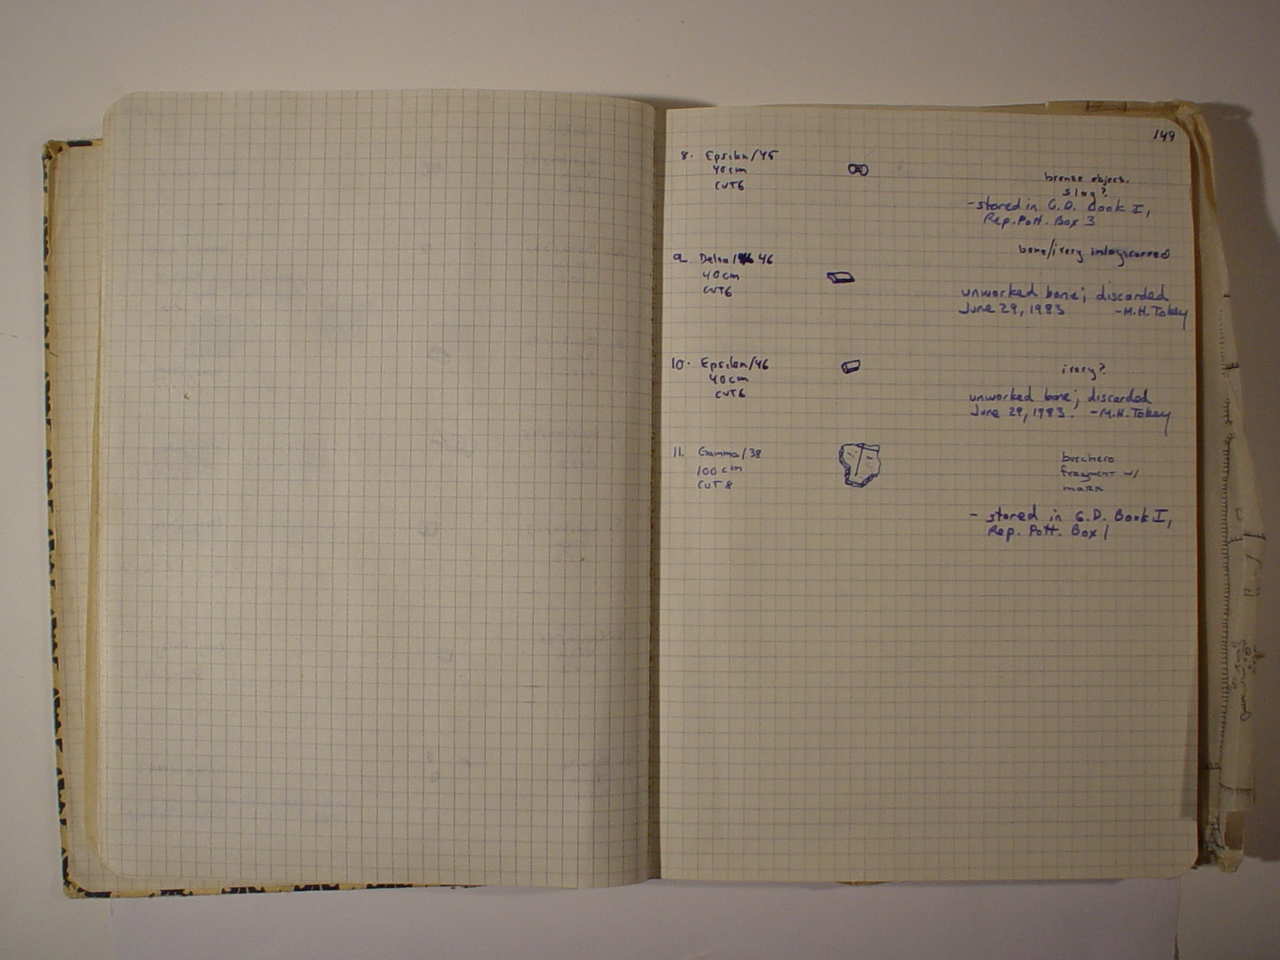 149
8. Epsilon/45
40cm
CUT6
bronze object.
slag?
- stored in G.D. Book I,
Rep. Pott. Box 3
9. Delta/ 46
40cm
CUT6
bone/ivory inlay
unworked bone; discarded
June 29, 1983 -M.H. Tobey
10. Epsilon/46
40cm
CUT6
ivory?
unworked bone; discarded
June 29, 1983. -M.H. Tobey
11. Gamma/38
100cm
CUT 8
fragment w/
mark
- stored in G.D. Book I,
Rep. Pott. Box 1